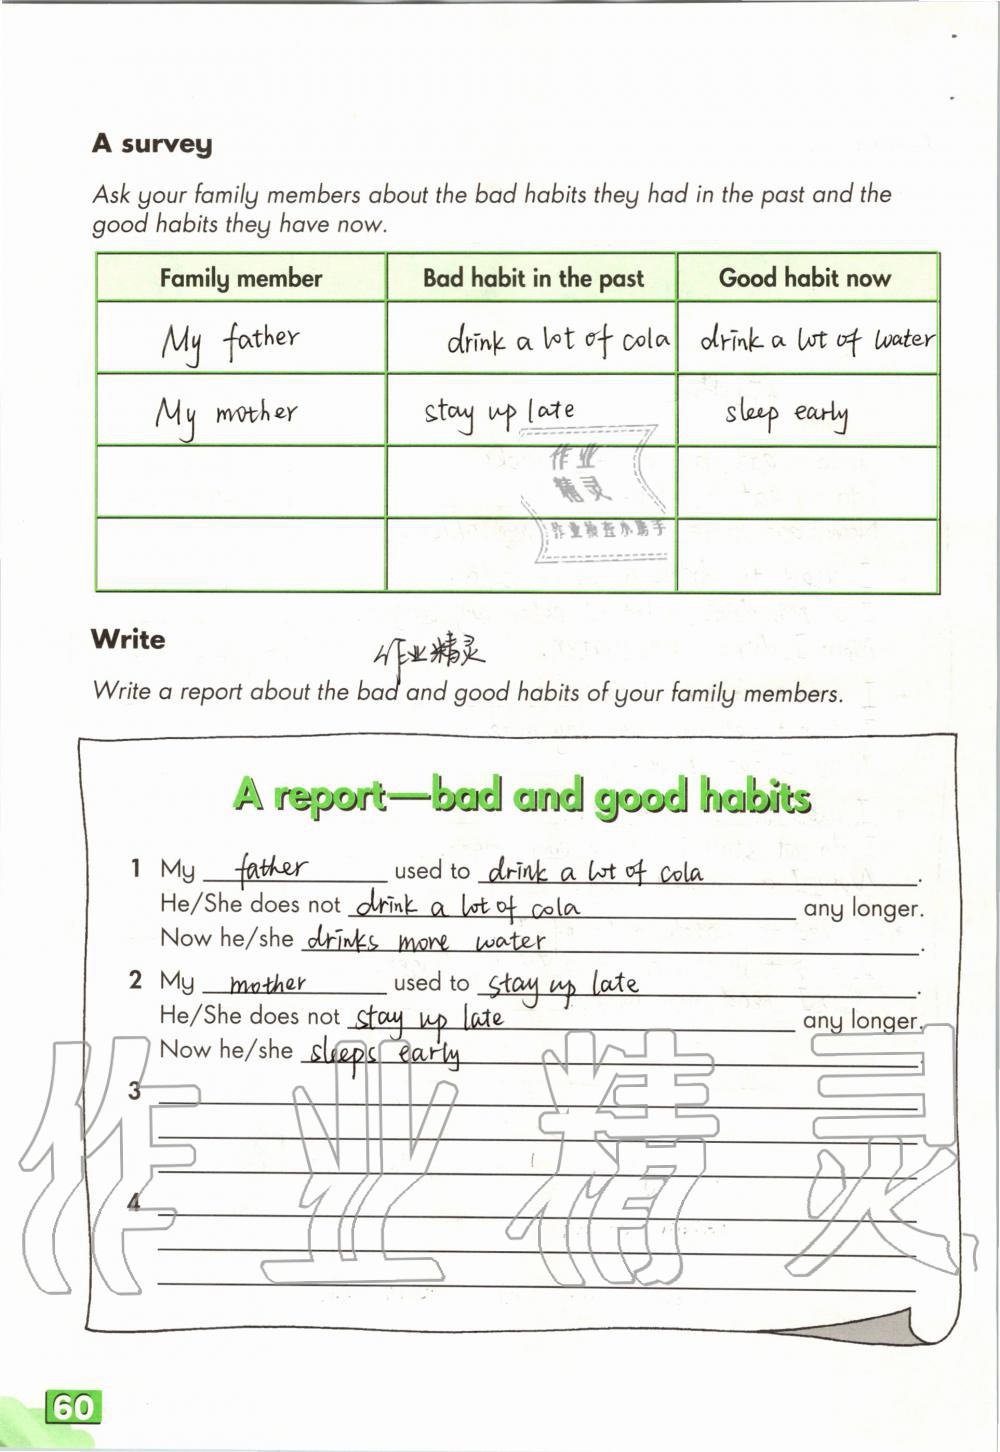 A survey
Ask your family members about the bad habits they had in the past and the
good habits they have now.
Family member Bad habit in the past Good habit now
My father drink a lot of cola drink a lot of water
My mother stay up late sleep early
作业
精灵
作业检查小高手
Write
作业精灵
Write a report about the bad and good habits of your family members.
A report—bad and good habits
1 My father used to drink a lot of cola.
He/She does not drink a lot of cola any longer.
Now he/she drinks more water.
2 My mother used to stay up late.
He/She does not stay up late any longer.
Now he/she sleeps early.
3
4
作业精灵
60